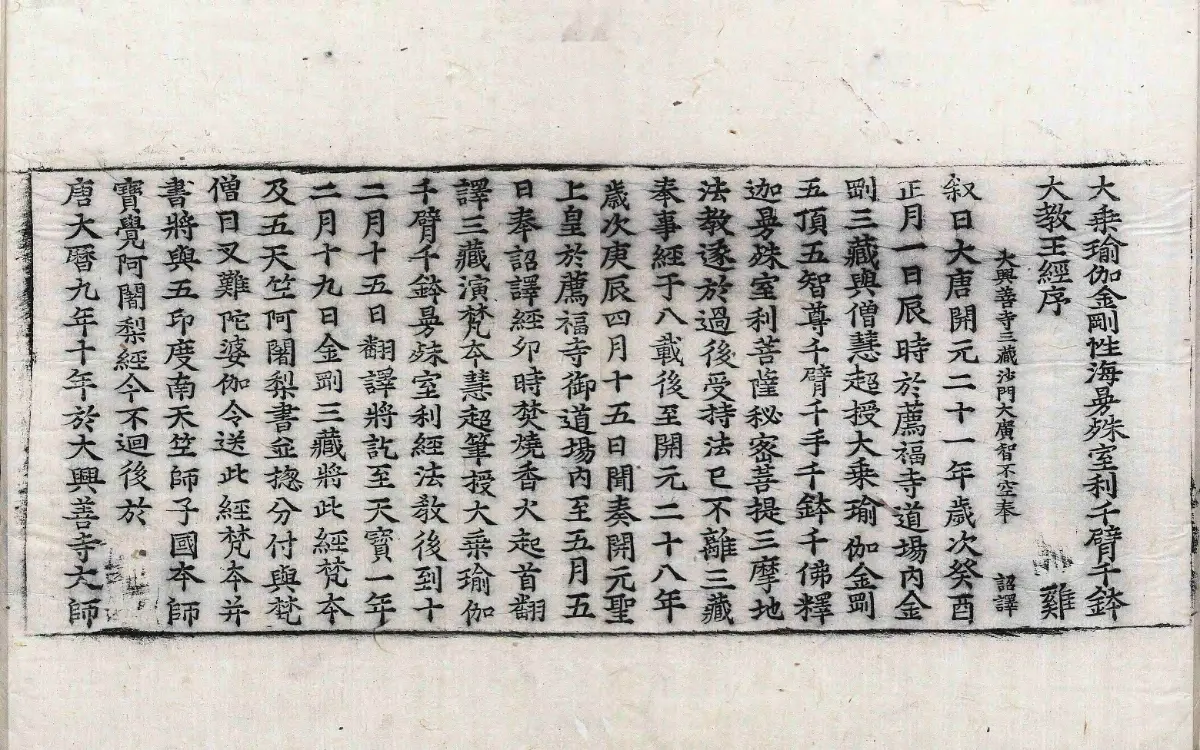 大乗瑜伽金剛性海曼殊室利千臂千鉢
大教王經序 雞
大興善寺三藏沙門大廣智不空奉 詔譯
叙曰大唐開元二十一年歳次癸酉
正月一日辰時於薦福寺道場内金
剛三藏與僧慧超授大乗瑜伽金剛
五頂五智尊千臂千手千鉢千佛釋
迦曼殊室利菩薩秘密菩提三摩地
法教遂於過後受持法已不離三藏
奉事經于八載後至開元二十八年
歳次庚辰四月十五日聞奏開元聖
上皇於薦福寺御道場内至五月五
日奉詔譯經夘時焚燒香火起首翻
譯三藏演梵夲慧超筆授大乗瑜伽
千臂千鉢曼殊室利經法教後到十
二月十五日翻譯將訖至天寶一年
二月十九日金剛三藏將此經梵夲
及五天竺阿闍梨書並揔分付與梵
僧目叉難陀婆伽令送此經梵夲并
書將與五印度南天竺師子國夲師
寶覺阿闍梨經今不迴後於
唐大曆九年十年於大興善寺大師